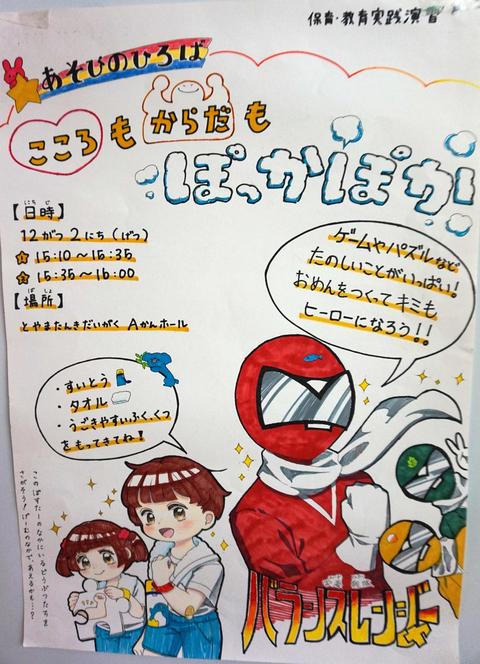 保育・教育実践演習
あそびのひろば
こころもからだも
ぽっかぽか
【日時】
にちじ
12がつ2にち(げつ)
15:10~15:35
15:35~16:00
【場所】
ばしょ
とやまたんきだいがく Aかんホール
ゲームやパズルなど
たのしいことがいっぱい!
おめんをつくってキミも
ヒーローになろう!!
・すいとう
・タオル
・うごきやすいふく、くつ
をもってきてね!
このぽすたーのなかにいるどうぶつたちを
さがそう!げーむのなかで、あえるかも…?
バランスレンジャー